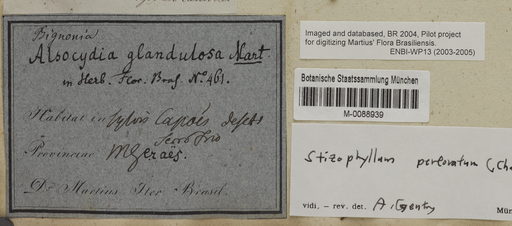 Bignonia
Alsocydia glandulosa Mart.
in Herb. Flor. Bras. No. 461.
Habitat in sylvis Capoës
Provinciae MGeraës.
Dr. Martius Iter Brasil.
Imaged and databased, BR 2004, Pilot project
for digitizing Martius' Flora Brasiliensis.
ENBI-WP13 (2003-2005)
Botanische Staatssammlung München
M-0088939
Stizophyllum perforatum (Cha
vidi, – rev. det. A. Gentry Mün